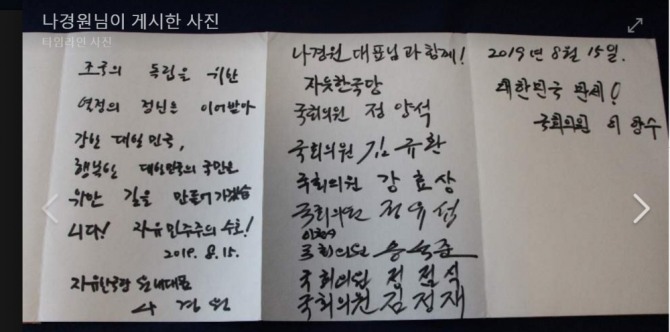 나경원님이 게시한 사진
타임라인 사진
조국의 독립을 위한
열정의 정신을 이어받아
강한 대한민국,
행복한 대한민국의 국민을
위한 길을 만들어가겠습
니다! 자유민주주의 수호!
2019. 8. 15.
자유한국당 원내대표
나경원
나경원 대표님과 함께!
자유한국당
국회의원 정양석
국회의원 김규환
국회의원 강효상
국회의원 정유섭
국회의원 송석준
국회의원 정점식
국회의원 김정재
2019년 8월 15일.
대한민국 만세!
국회의원 이양수